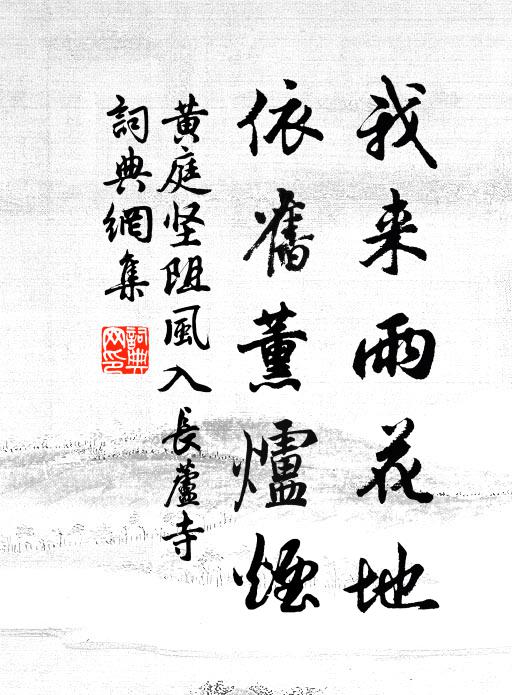 我来雨花地
依舊薰爐煙
黄庭坚阻風入長蘆寺
詞典網集
詞典
网印